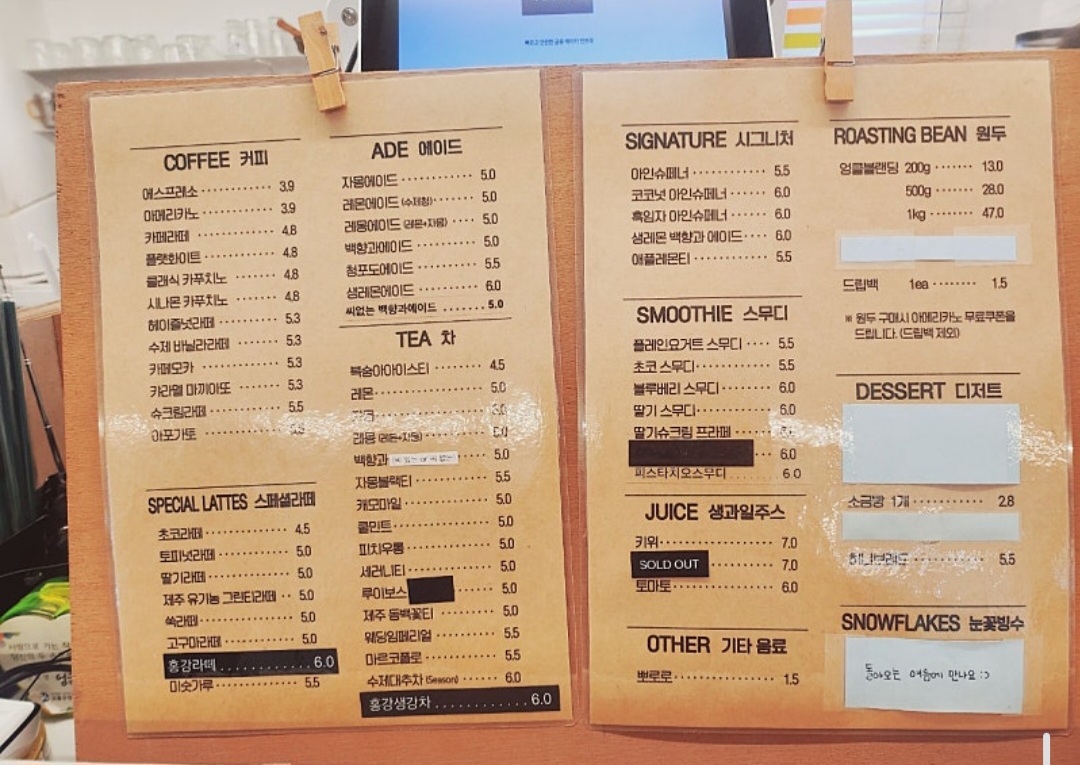 COFFEE 커피
에스프레소 3.9
아메리카노 3.9
카페라떼 4.8
플랫화이트 4.8
클래식 카푸치노 4.8
시나몬 카푸치노 4.8
헤이즐넛라떼 5.3
수제 바닐라라떼 5.3
카페모카 5.3
카라멜 마끼아또 5.3
슈크림라떼 5.5
아포가토
SPECIAL LATTES 스페셜라떼
초코라떼 4.5
토피넛라떼 5.0
딸기라떼 5.0
제주 유기농 그린티라떼 5.0
쑥라떼 5.0
고구마라떼 5.0
홍강라떼 6.0
미숫가루 5.5
ADE 에이드
자몽에이드 5.0
레몬에이드 (수제청) 5.0
레몽에이드 (레몬+자몽) 5.0
백향과에이드 5.0
청포도에이드 5.5
생레몬에이드 6.0
씨없는 백향과에이드 5.0
TEA 차
복숭아아이스티 4.5
레몬 5.0
레몽 (레몬+자몽)
백향과 5.0
자몽블랙티 5.5
캐모마일 5.0
쿨민트 5.0
피치우롱 5.0
세러니티 5.0
루이보스 5.0
제주 동백꽃티 5.0
웨딩임페리얼 5.5
마르코폴로 5.5
수제대추차 (Season) 6.0
홍강생강차 6.0
SIGNATURE 시그니처
아인슈페너 5.5
코코넛 아인슈페너 6.0
흑임자 아인슈페너 6.0
생레몬 백향과 에이드 6.0
애플레몬티 5.5
SMOOTHIE 스무디
플레인요거트 스무디 5.5
초코 스무디 5.5
블루베리 스무디 6.0
딸기 스무디 6.0
딸기슈크림 프라페
6.0
피스타치오스무디 6.0
JUICE 생과일주스
키위 7.0
SOLD OUT 7.0
토마토 6.0
OTHER 기타 음료
뽀로로 1.5
ROASTING BEAN 원두
엉클블랜딩 200g 13.0
500g 28.0
1kg 47.0
드립백 1ea 1.5
※ 원두 구매시 아메리카노 무료쿠폰을
드립니다. (드립백 제외)
DESSERT 디저트
소금빵 1개 2.8
허니브레드 5.5
SNOWFLAKES 눈꽃빙수
돌아오는 여름에 만나요 :)